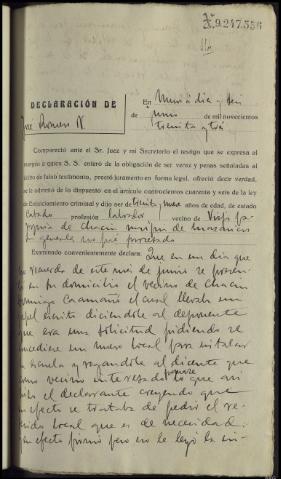 N.9247,556
DECLARACIÓN DE
En Muros a diez y seis
de junio de mil novecientos
treinta y tres
Jose Romero
Compareció ante el Sr. Juez y mi Secretorio el testigo que se expresa al
margen a quien S. S. enteró de la obligación de ser veraz y penas señaladas al
delito de falso testimonio, prestó juramento en forma legal, ofreció decir verdad,
se le advirtió de lo dispuesto en el artículo cuatrocientos cuarenta y seis de la ley
de Enjuiciamiento criminal y dijo ser de treinta y nueve años de edad, de estado
casado profesión labrador vecino de
parroquia de Chacin municipio de Mazaricos
no fue procesado
Examinado convenientemente declara: Que en un dia que
no recuerda de este mes de junio se presen-
tó en su domicilio el vecino de Chacin
Domingo Caamaño el cual llevaba un
papel escrito diciendole al deponente
que era una solicitud pidiendo se
concediese un nuevo local para instalar
la escuela y rogandole al diciente que
como vecino interesado lo firmase que asi
hizo el declarante creyendo que
en efecto se trataba de pedir el re-
ferido local que es de necesidad.
En efecto firmó pero no le leyó la ins-